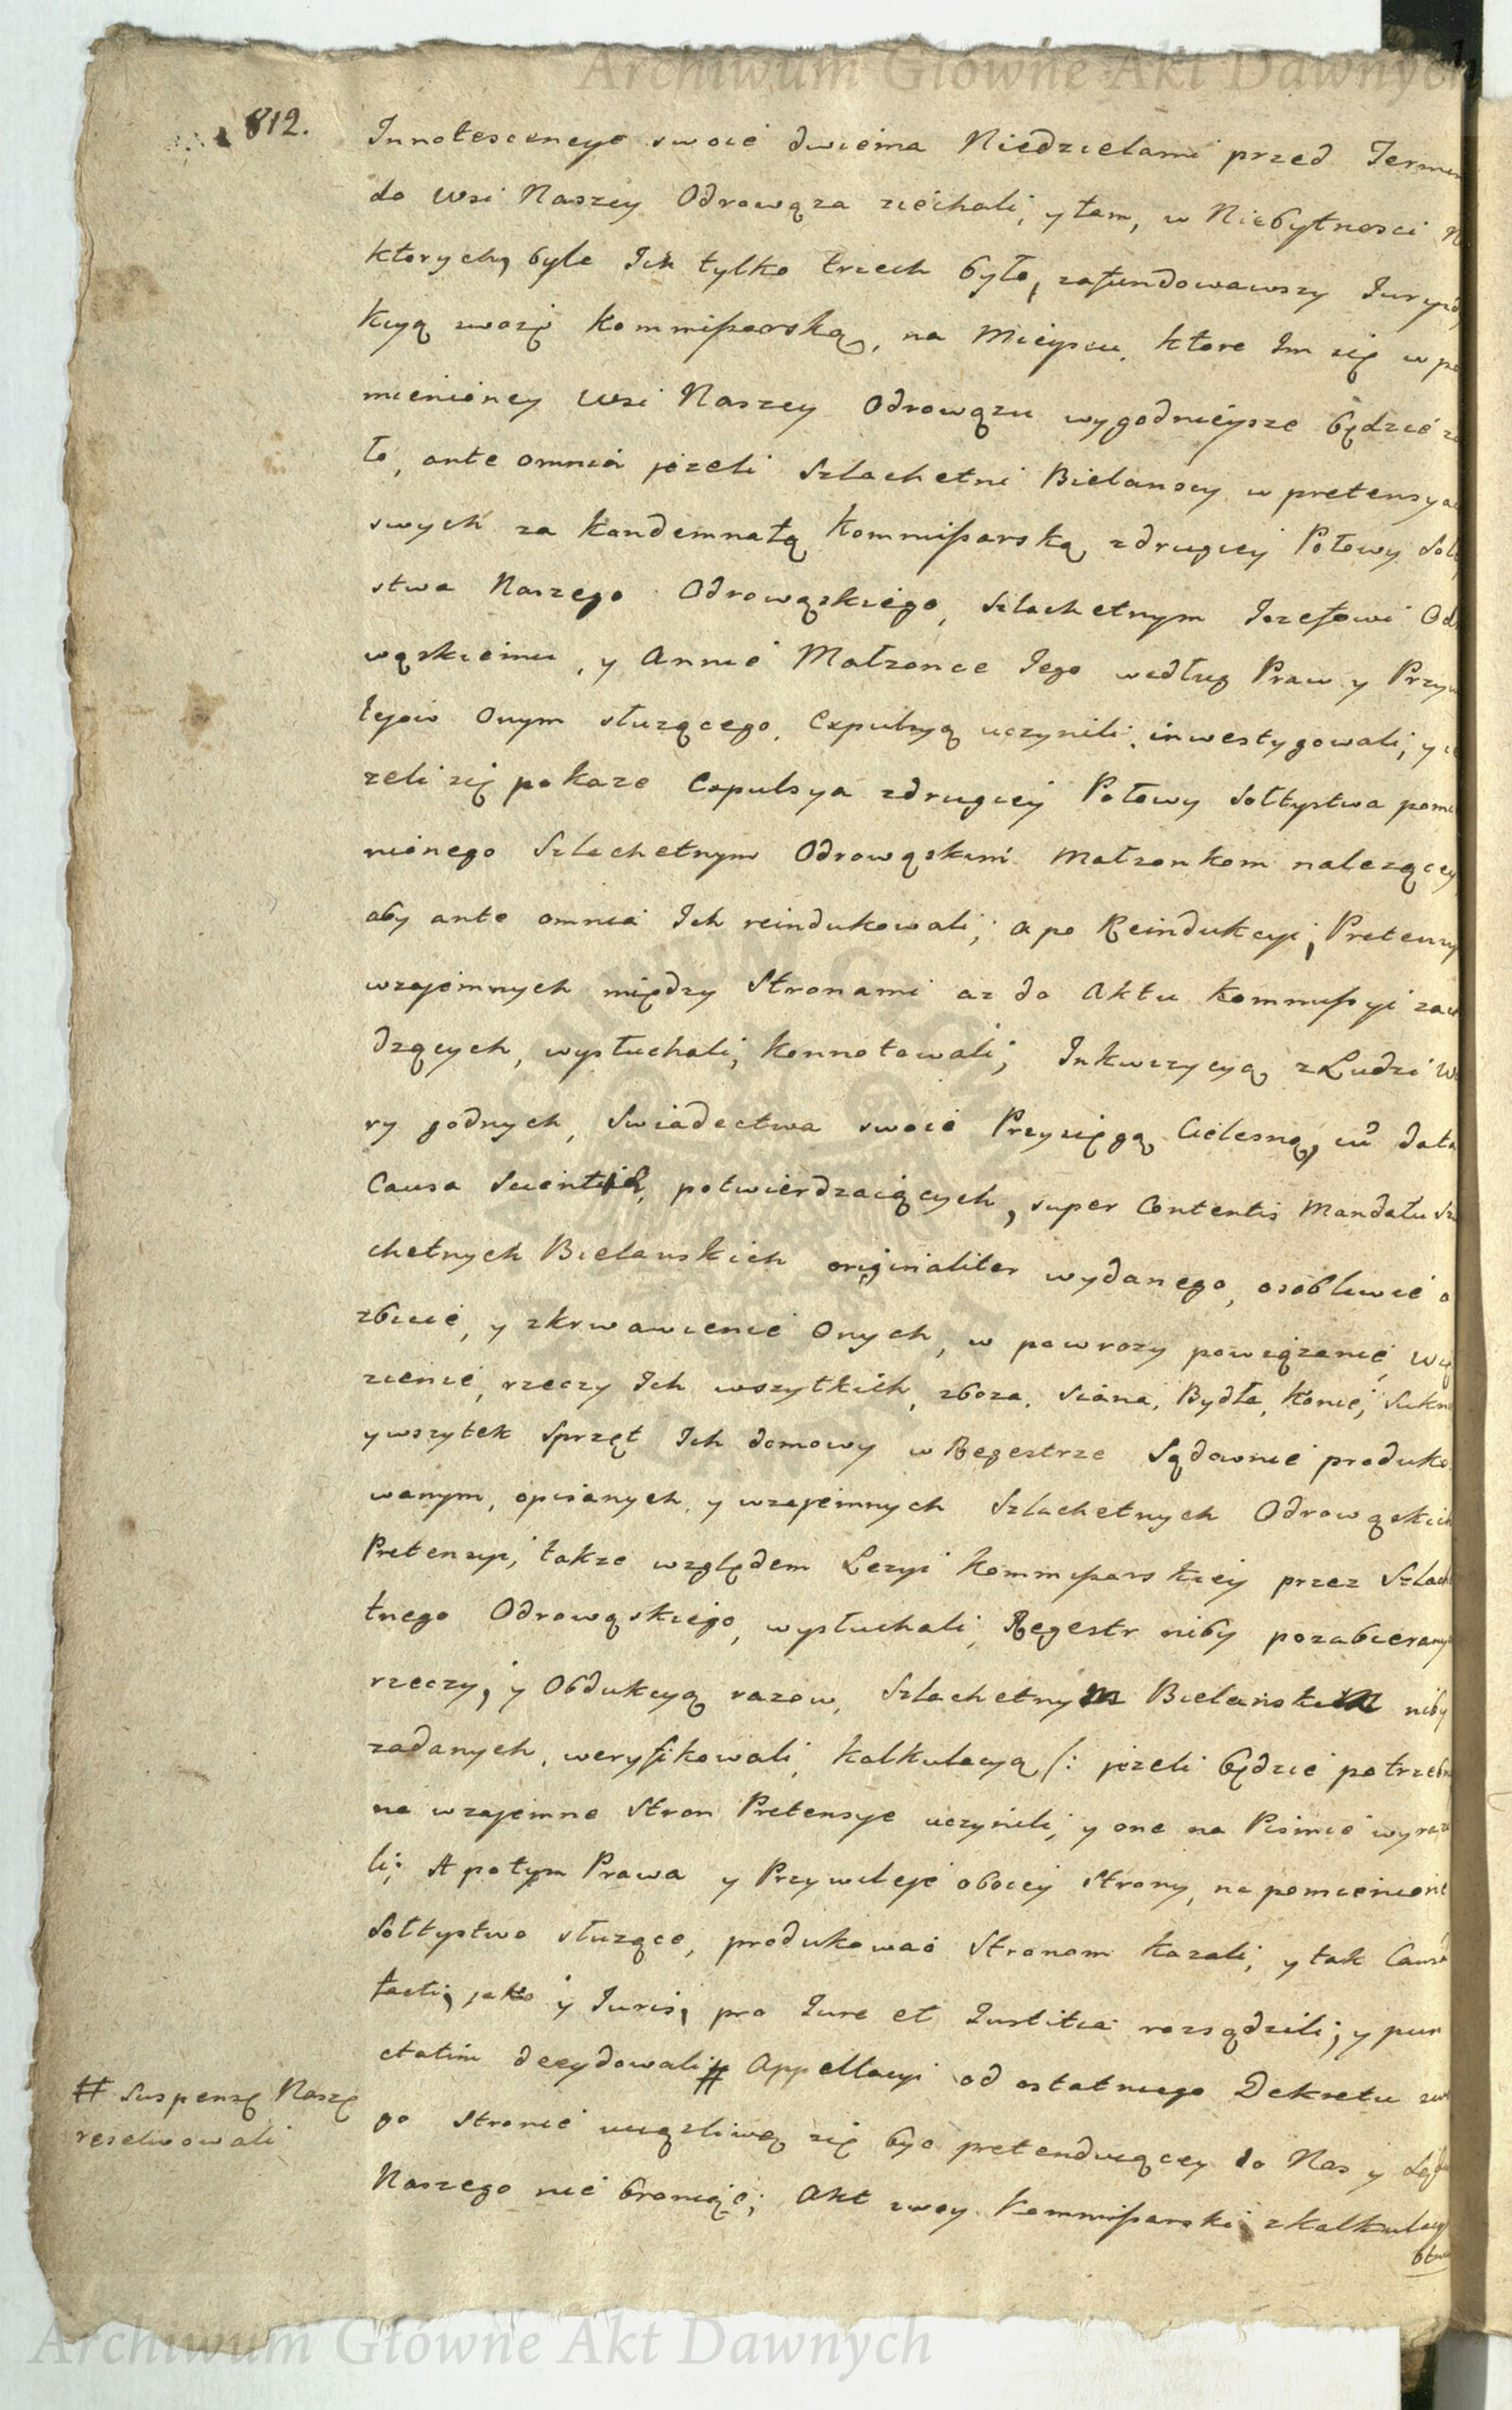 Archiwum Główne Akt Dawnych
812.
Innotescencye swoie dwiema Niedzielami przed Termin
do Wsi Naszey Odrowąza ziechali, y tam, w Niebytnosci
ktorych, byle Ich tylko trzech było, zafundowawszy Juryzd
kcyą swoię Kommissarską, na Mieyscu, ktore Im się w po
mienioney Wsi Naszey Odrowązu wygodnieysze będzie
to, ante omnia jezeli Szlachetni Bielanscy w pretensyac
swych za Kondemnatą Kommissarską z drugiey Połowy Sołt
stwa Naszego Odrowązkiego, Szlachetnym Jozefowi Odr
wązkiemu, y Annie Małzonce Jego według Praw y Przyw
leiow Onym słuzącego, Expulsyą uczynili, inwestygowali, y ie
zeli się pokaze Expulsya z drugiey Połowy Sołtystwa pomi
nionego Szlachetnym Odrowązkim Małzonkom nalezącey
aby ante omnia Ich reindukowali, a po Reindukcyi, Pretensy
wzaiemnych między Stronami az do Aktu Kommissyi zach
dzących, wysłuchali, konnotowali; Inkwizycyą z Ludzi Wi
ry godnych, Swiadectwa swoie Przysięgą Cielesną, cum data
Causa Scientiæ, potwierdzaiących, super Contentis Mandatu Szl
chetnych Bielanskich originaliter wydanego, osobliwie o
zbicie, y zkrwawienie Onych, w powrozy powiązanie, Wię
zienie, rzeczy Ich wszytkich, zboza, Siana, Bydła, Konie, Sukn
y wszytek Sprzęt Ich domowy w Regestrze Sądownie produko
wanym, opisanych, y wzaiemnych Szlachetnych Odrowązkich
Pretensyi, takze względem Lezyi Kommissarskiey przez Szlach
tnego Odrowąskiego, wysłuchali, Regestr niby pozabierany
rzeczy, y Obdukcyą razow, Szlachetnym Bielanskim niby
zadanych, weryfikowali, kalkulacyą /: jezeli będzie potrzebn
na wzaiemne Stron Pretensye uczynili, y one na Pismie wyrazi
li; A potym Prawa y Przywileje oboiey Strony, na pomienione
Sołtystwo słuzące, produkować Stronom kazali, y tak Causam
facti, jako y Juris, pro Jure et Justitia rozsądzili, y pun
ctatim decydowali # Appellacyi od ostatniego Dekretu swe
# Suspensę Naszę
reserwowali
go Stronie uciązliwą się być pretenduiącey do Nas y Sądu
Naszego nie broniąc; Akt swoy Kommissarski z kalkulacyą
Archiwum Główne Akt Dawnych